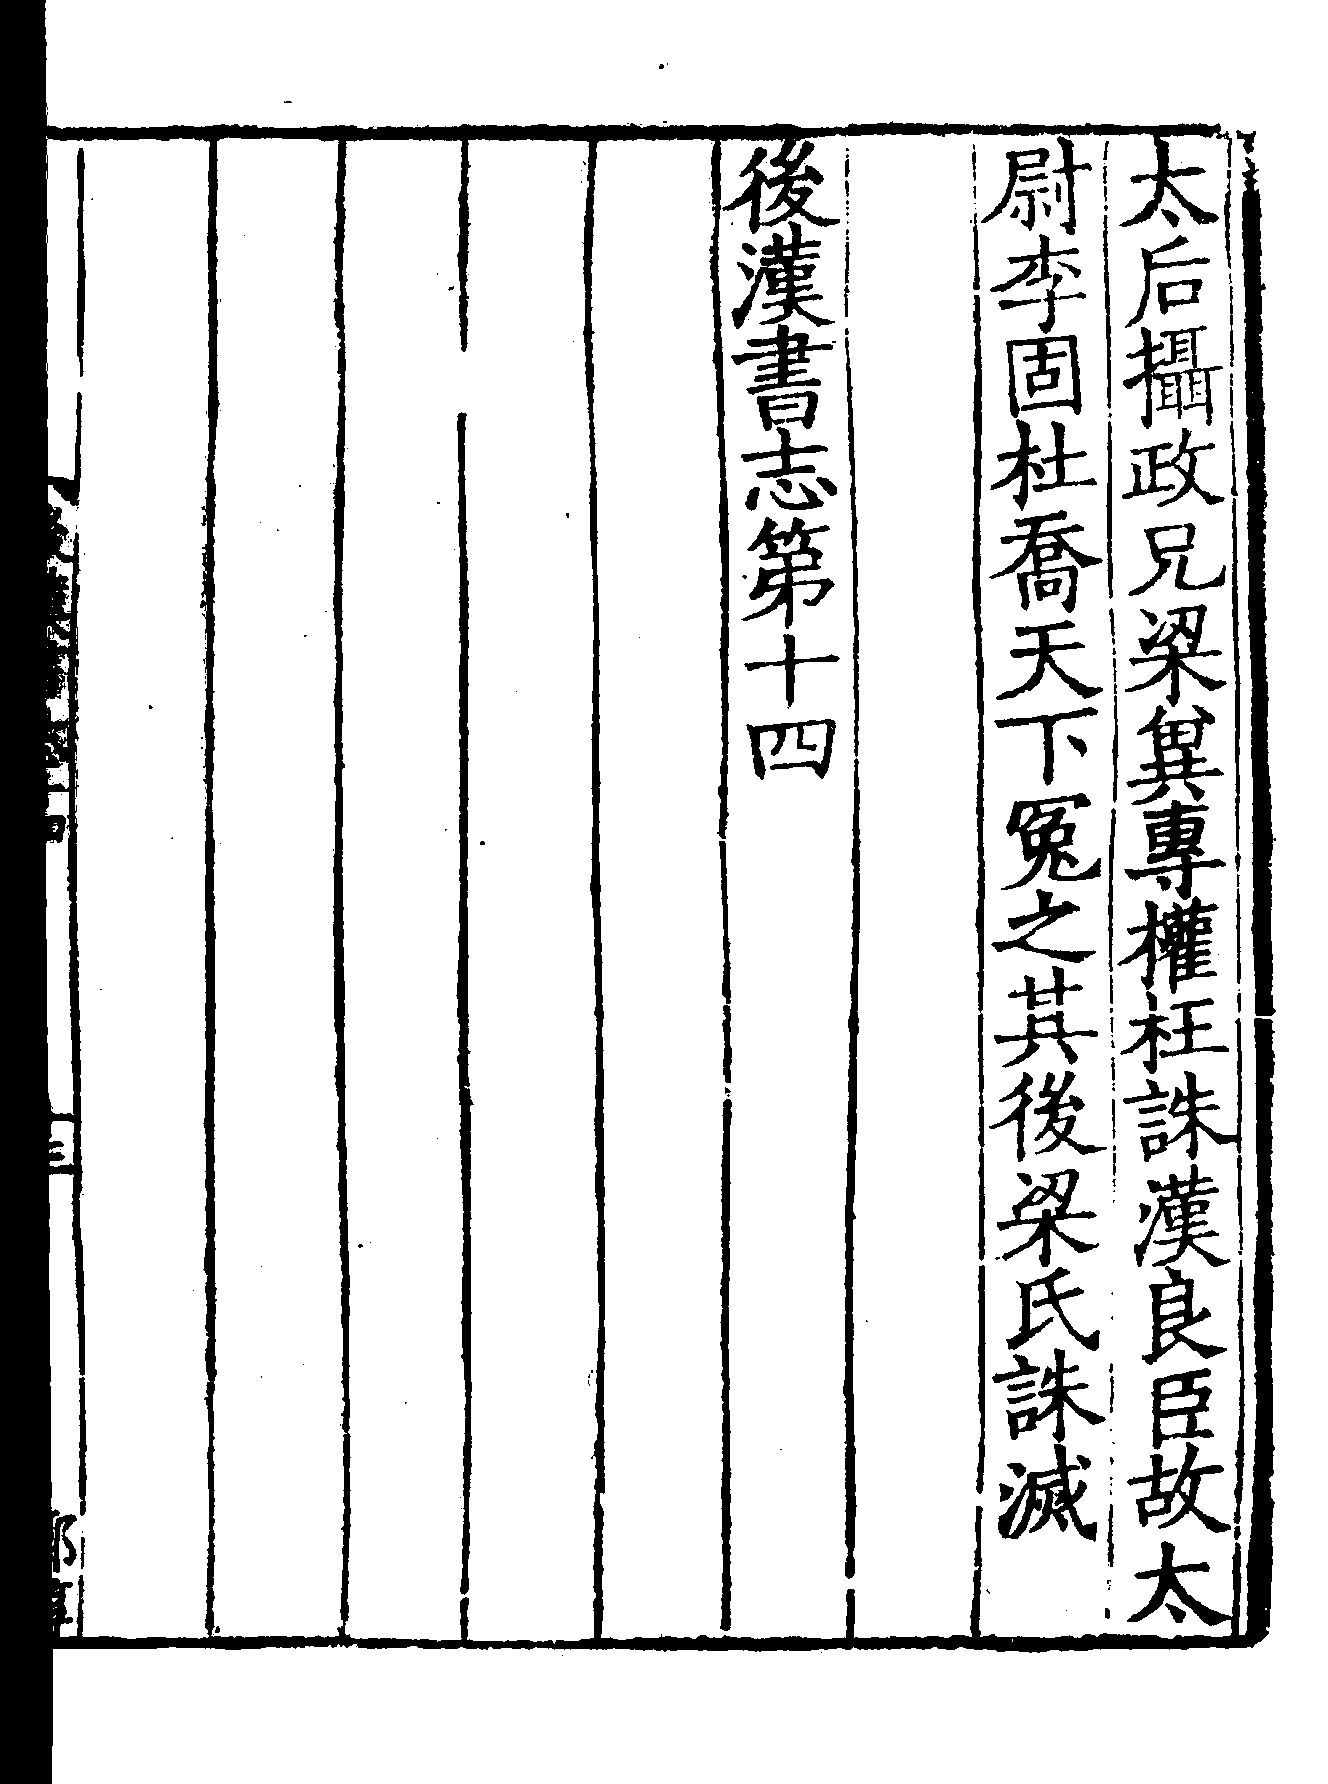 太后攝政兄梁冀專權枉誅漢良臣故太
尉李固杜喬天下冤之其後梁氏誅滅
後漢書志第十四